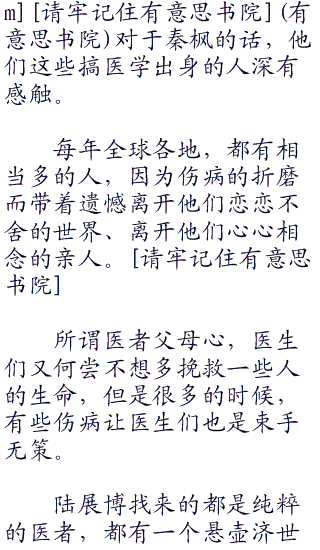 m] [请牢记住有意思书院] (有
意思书院)对于秦枫的话，他
们这些搞医学出身的人深有
感触。
每年全球各地，都有相
当多的人，因为伤病的折磨
而带着遗憾离开他们恋恋不
舍的世界、离开他们心心相
念的亲人。[请牢记住有意思
书院]
所谓医者父母心，医生
们又何尝不想多挽救一些人
的生命，但是很多的时候，
有些伤病让医生们也是束手
无策。
陆展博找来的都是纯粹
的医者，都有一个悬壶济世